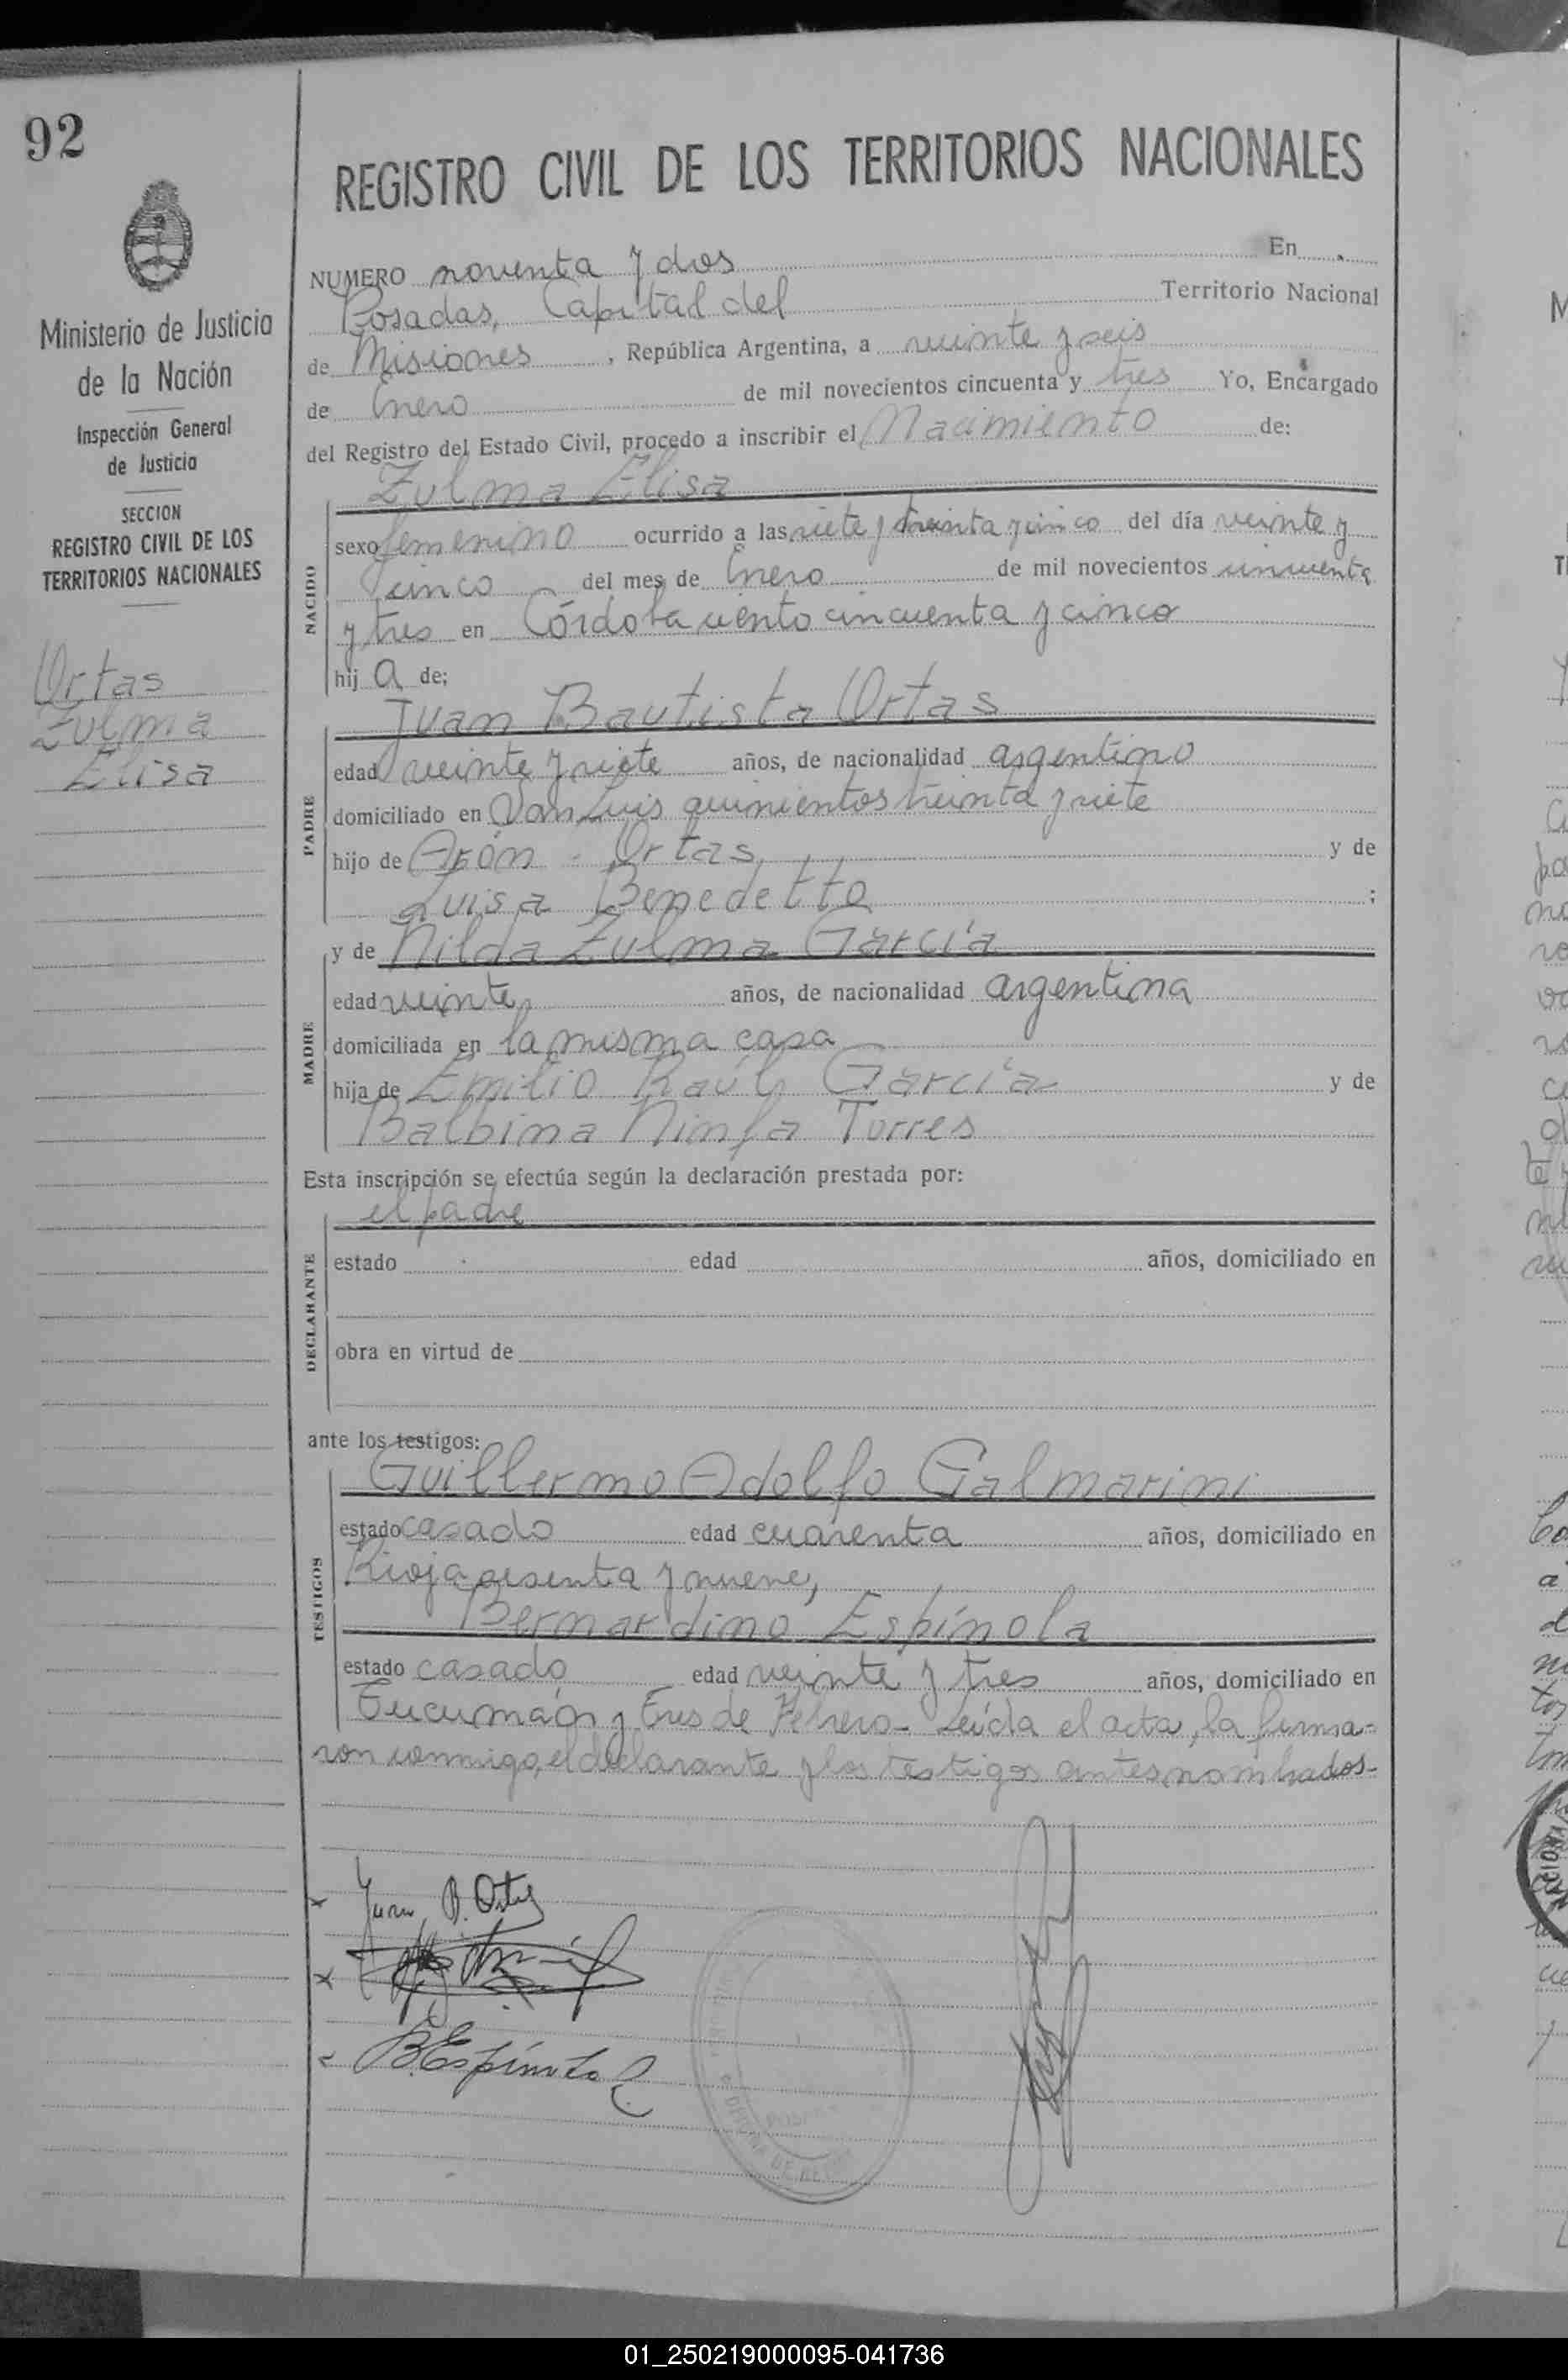 92
Ministerio de Justicia
de la Nación
Inspección General
de Justicia
SECCION
REGISTRO CIVIL DE LOS
TERRITORIOS NACIONALES
Ortas
Zulma
Elisa
REGISTRO CIVIL DE LOS TERRITORIOS NACIONALES
NUMERO noventa y dos En
Posadas, Capital del Territorio Nacional
de Misiones, República Argentina, a veinte y seis
de Enero de mil novecientos cincuenta y tres Yo, Encargado
del Registro del Estado Civil, procedo a inscribir el Nacimiento de:
NACIDO
Zulma Elisa
sexo femenino ocurrido a las siete y treinta y cinco del día veinte y
cinco del mes de Enero de mil novecientos cincuenta
y tres en Córdoba ciento cincuenta y cinco
hija de;
PADRE
Juan Bautista Ortas
edad veinte y siete años, de nacionalidad argentino
domiciliado en San Luis quinientos treinta y siete
hijo de Arón Ortas y de
Luisa Benedetto ;
MADRE
y de Nilda Zulma García
edad veinte, años, de nacionalidad argentina
domiciliada en la misma casa
hija de Emilio Raúl García y de
Balbina Ninfa Torres
Esta inscripción se efectúa según la declaración prestada por:
DECLARANTE
el padre
estado edad años, domiciliado en
obra en virtud de
ante los testigos:
TESTIGOS
Guillermo Adolfo Galmarini
estado casado edad cuarenta años, domiciliado en
Rioja sesenta y nueve,
Bernardino Espínola
estado casado edad veinte y tres años, domiciliado en
Tucumán y Tres de Febrero - Leída el acta, la firma-
ron conmigo, el declarante y los testigos antes nombrados-
Juan B. Ortas
B. Espínola
01_250219000095-041736